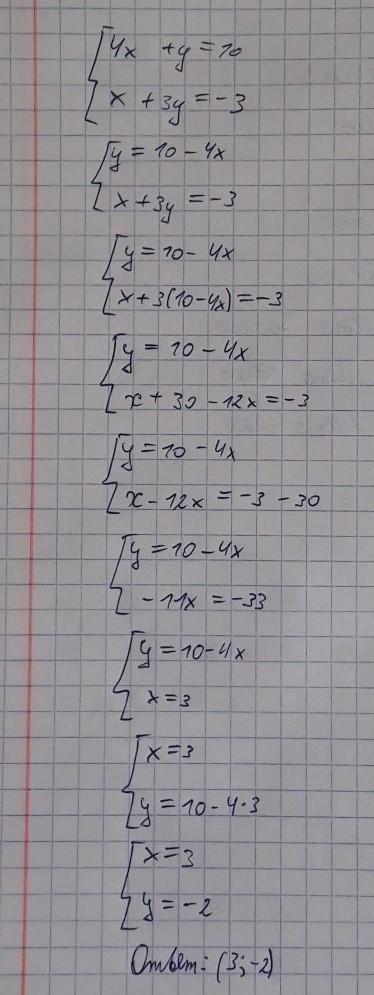 4x + y = 10
x + 3y = -3
y = 10 - 4x
x + 3y = -3
y = 10 - 4x
x + 3(10-4x) = -3
y = 10 - 4x
x + 30 - 12x = -3
y = 10 - 4x
x - 12x = -3 - 30
y = 10 - 4x
-11x = -33
y = 10 - 4x
x = 3
x = 3
y = 10 - 4·3
x = 3
y = -2
Ответ: (3; -2)